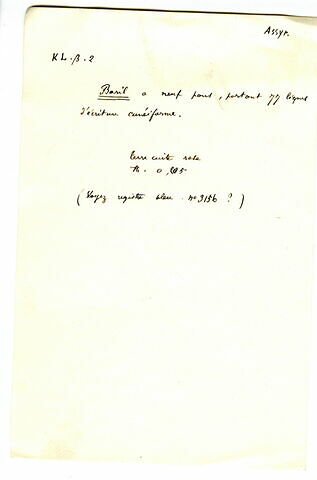 Assyr.
KL-β-2
Baril a neuf pans, portant 77 lignes
d'écriture cunéiforme.
terre cuite
h. 0,
(Voyez registre bleu n° 3156 ?)